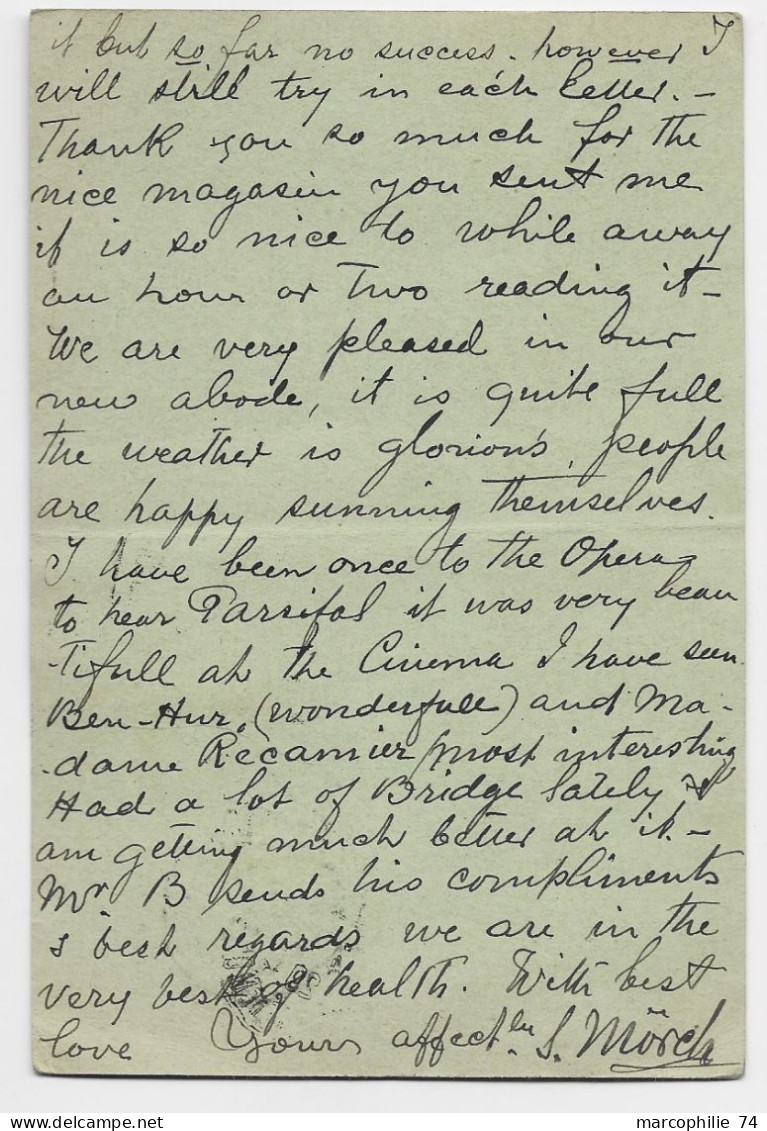 it but so far no success. however I
will still try in each letter. –
Thank you so much for the
nice magasin you sent me
it is so nice to while away
an hour or two reading it –
We are very pleased in our
new abode, it is quite full
the weather is glorious, people
are happy sunning themselves.
I have been once to the Opera
to hear Parsifal it was very beau
-tifull at the Cinema I have seen
Ben-Hur, (wonderfull) and Ma-
-dame Récamier, most interesting
Had a lot of Bridge lately &
am getting much better at it. –
Mr B sends his compliments
& best regards we are in the
very best of health. With best
love Yours affectly. S. Mörch
marcophilie 74